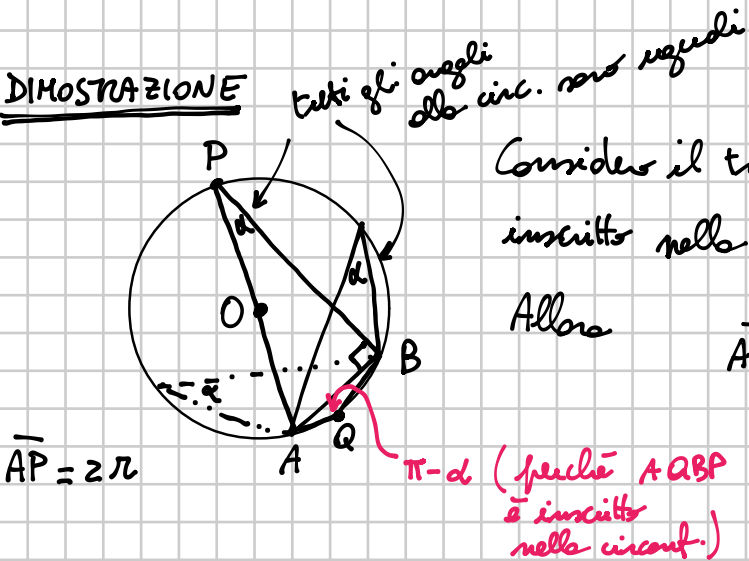 DIMOSTRAZIONE
tutti gli angoli
alla circ. sono uguali
Considero il t
inscritto nella
Allora
A
P
α
α
O
B
α
A
Q
AP = 2r
π-α (perché AQBP
è inscritto
nella circonf.)